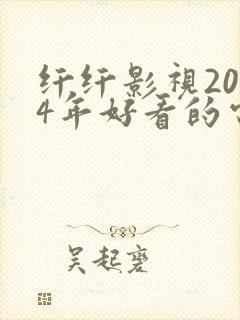 纤纤影視20
4年好看的
吴起褰